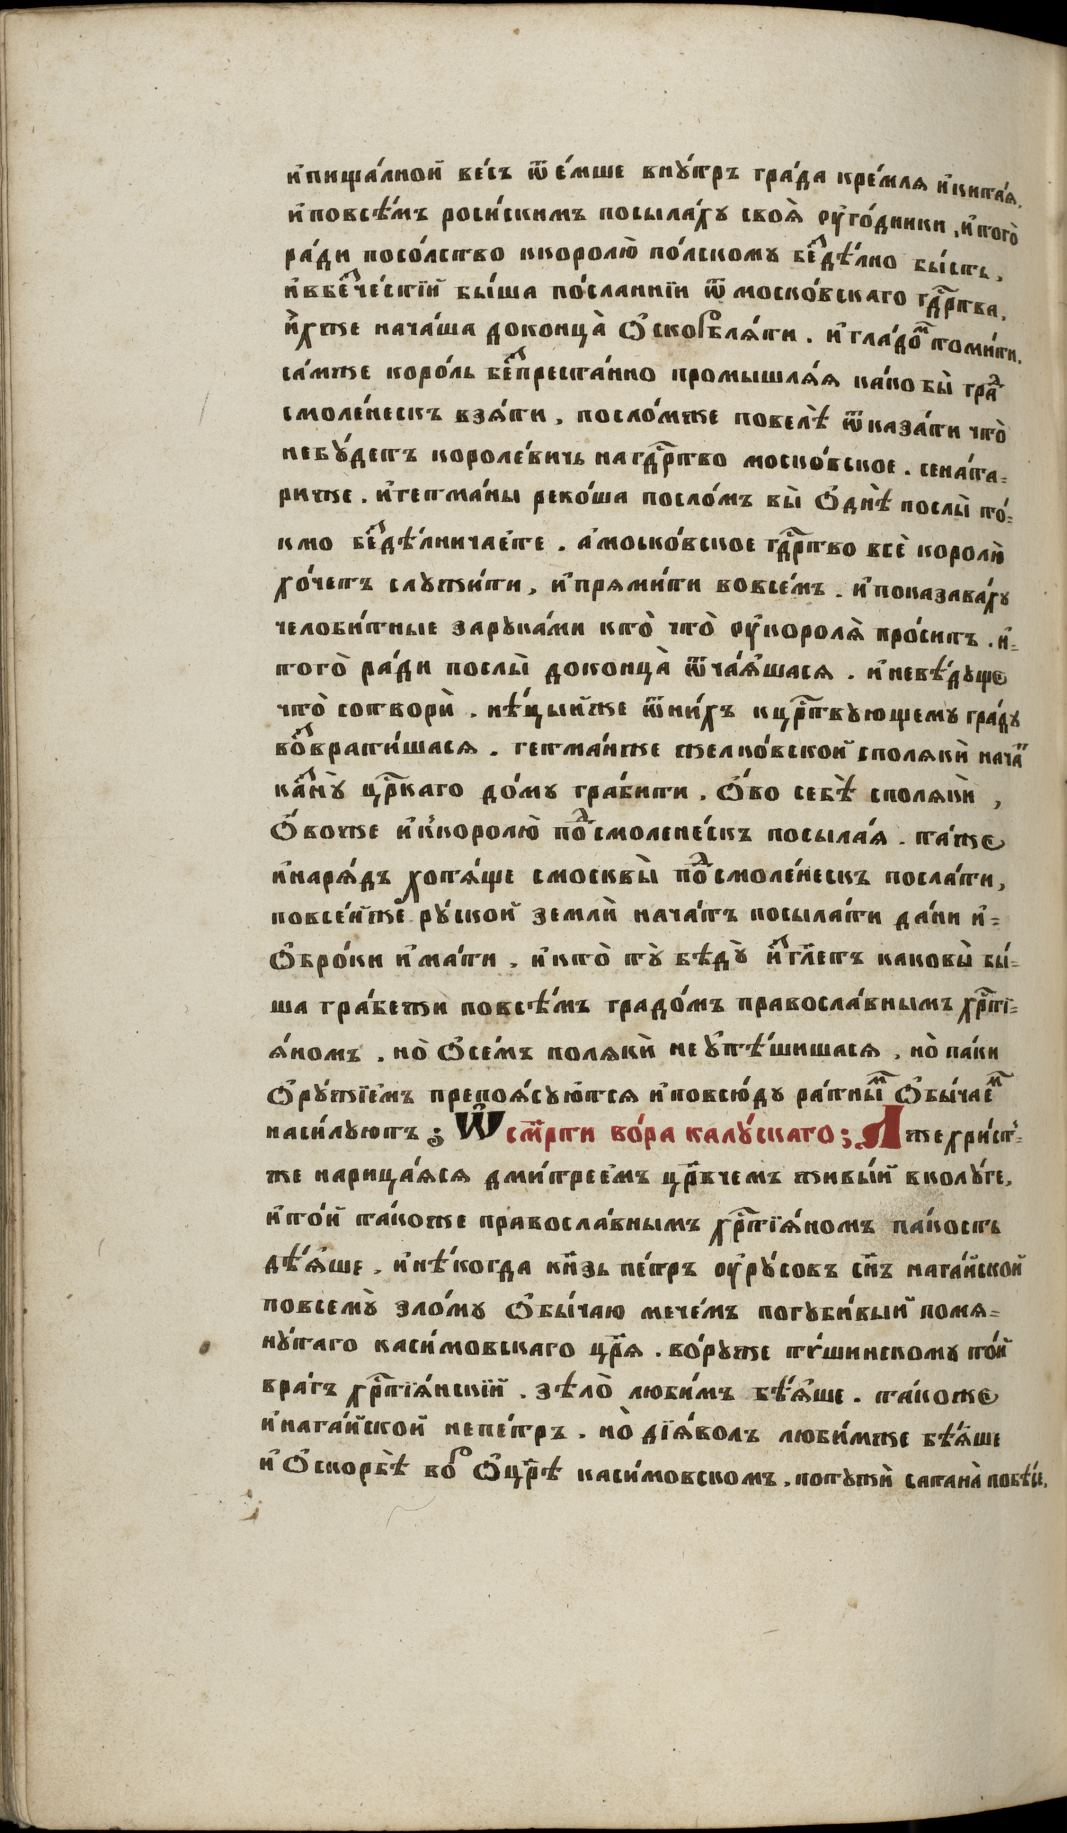 и҆пища́лной ве́сь ѿе́мше вну́трь гра́да кре́мля и҆кита́я,
и҆повсѣ́мъ роси́скимъ посыла́ху своя̀ оу҆го́дники, и҆того̀
ра́ди посо́лство ккоролю̀ по́лскому беⷥдѣ́лно бы́сть,
и҆вбеⷥче́стїй бы́ша посла́ннїи ѿмоско́вскаго гдⷭ҇рьтва,
и҆́хже нача́ша доконца̀ ѡ҆скоⷬбля́ти. и҆гла́доⷨ томи́ти.
са́мже коро́ль беⷥпреста́нно промышля́я ка́кобы̀ граⷣ
смоле́нескъ взя́ти, посло́мже повелѣ̀ ѿказа́ти что̀
небу́детъ короле́вичь нагдⷭ҇рьтво моско́вское. сена́та-
риже. и҆гетма́ны реко́ша посло́мъ вы̀ ѡ҆днѣ̀ послы̀ то́-
кмо беⷥдѣ́лничаете. а҆моско́вское гдⷭ҇рьтво всѐ королю̀
хо́четъ служи́ти, и҆прями́ти вовсе́мъ. и҆показава́ху
челоби́тные зарука́ми кто̀ что̀ оу҆короля̀ про́ситъ. и҆-
того̀ ра́ди послы̀ доконца̀ ѿча́яшася. и҆невѣ́дуще
что̀ сотворѝ. нѣ́цыйже ѿни́хъ кцрⷭ҇твующему гра́ду
воⷥврати́шася. гетма́нже желко́вской сполякѝ начаⷲ҇
каⷥну̀ црⷭ҇каго до́му гра́бити. ѡ҆́во себѣ̀ сполякѝ,
ѡ҆́воже и҆ккоролю̀ поⷣсмоленескъ посыла́я. та́же
и҆наря́дъ хотя́ще смосквы̀ поⷣсмоле́нескъ посла́ти,
повсе́йже ру́ской землѝ нача́тъ посыла́ти да́ни и҆-
ѡ҆бро́ки и҆ма́ти. и҆кто̀ ту̀ бѣду̀ и҆ⷥгл҃етъ каковы̀ бы́-
ша гра́бежи повсѣ́мъ градо́мъ правосла́внымъ хрⷭ҇тї-
я́номъ. но̀ ѡ҆се́мъ полякѝ неу҆тѣ́шишася, но̀ па́ки
ѡ҆ру́жїемъ препоя́суются и҆повсю́ду ра́тныⷨ ѡ҆бы́чаеⷨ
наси́луютъ; Ѡ҆см҃рти во́ра калу́скаго; Лжехри́ст-
же нарица́яся дми́треемъ црⷭ҇вчемъ живы́й вколу́ге,
и҆то́й та́коже правосла́внымъ хрⷭ҇тїя́номъ па́кость
дѣ́яше, и҆нѣ́когда кн҃зь пе́тръ оу҆ру́совъ сн҃ъ нага́йской
повсему̀ зло́му ѡ҆бы́чаю мече́мъ погуби́вый помя-
ну́таго каси́мовскаго цр҃я. во́руже ту́шинскому то́й
вра́гъ хрⷭ҇тїя́нскїй. зѣло̀ люби́мъ бѣ́яше. та́коже
и҆нага́йской непе́тръ. но̀ дїя́волъ люби́мже бѣ́яше
и҆ѡ҆скорбѣ̀ воⷬ ѡ҆цр҃ѣ каси́мовскомъ, потужѝ сатана̀ побѣ́се,